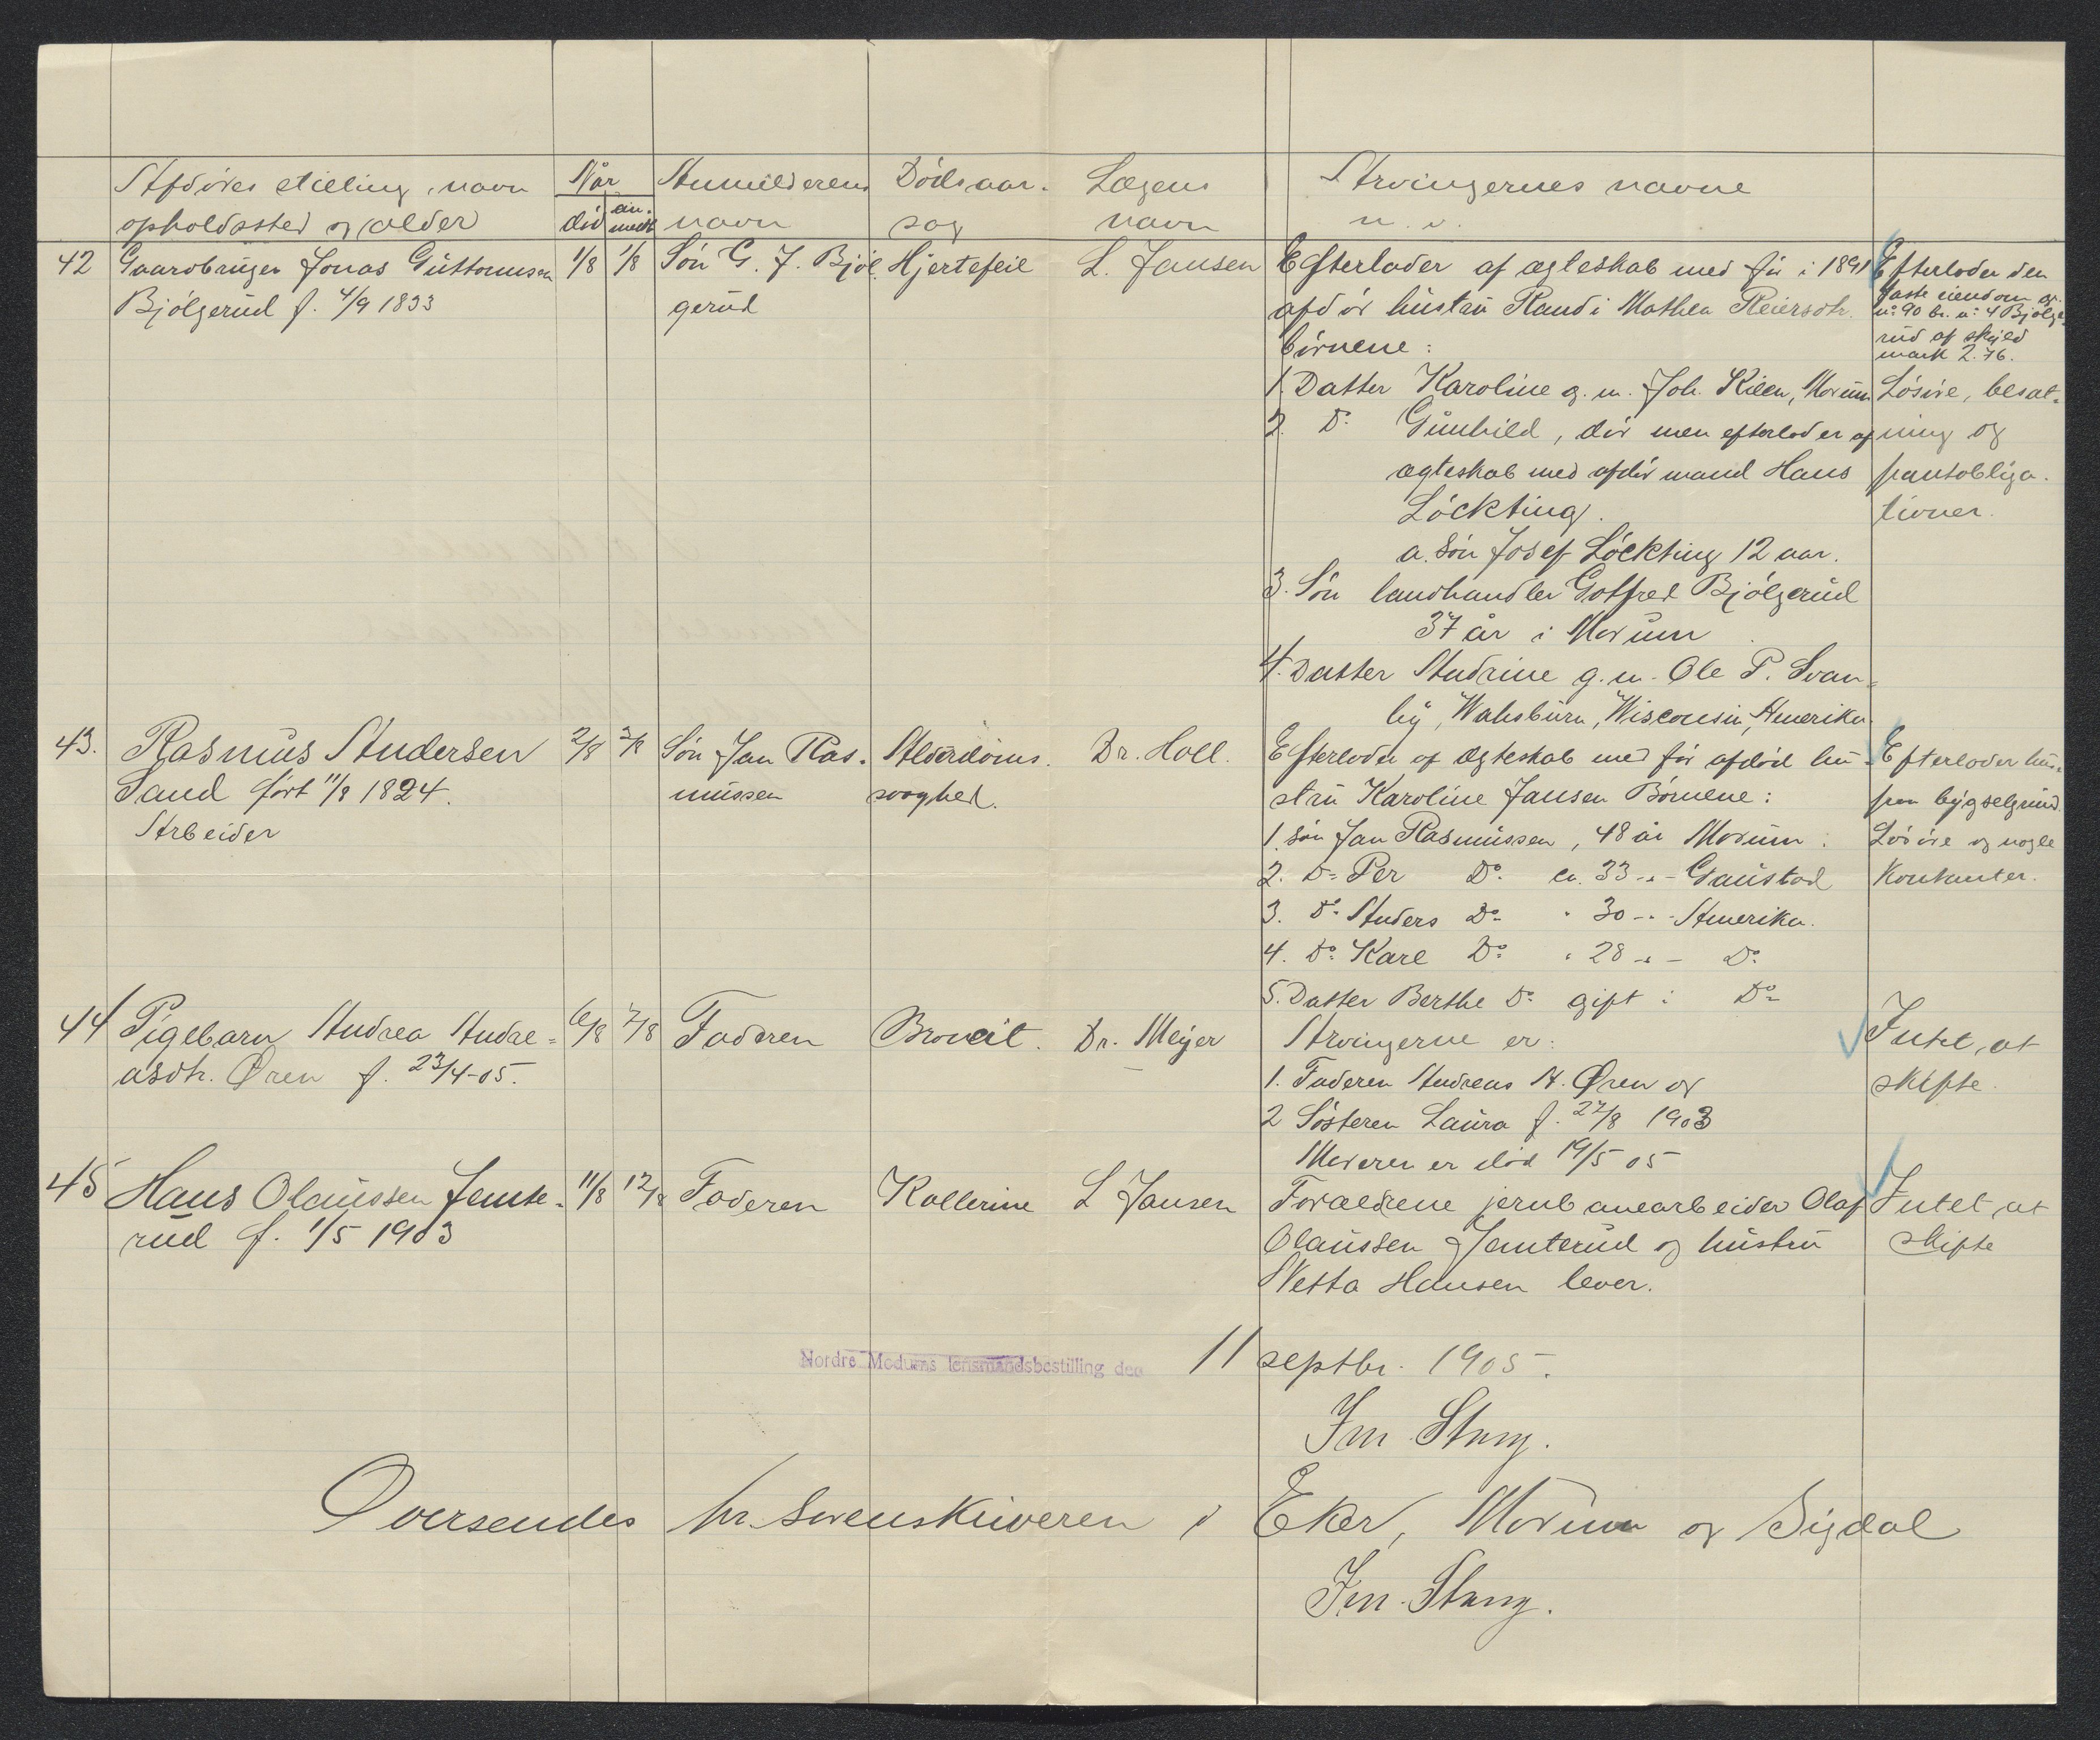 Afdödes stilling, navn
opholdssted og alder
Når
död
an-
meldt
Anmelderens
navn
Dödsaar-
sag
Lægens
navn
Arvingernes navne
m. v.
42 Gaardbruger Jonas Guttormsen
Bjölgerud f. 4/9 1833
1/8 1/8
Sön G. J. Bjöl-
gerud
Hjertefeil
L. Jansen
Efterlader af ægteskab med för i 1891
afdör hustru Randi Mathea Reiersdtr.
börnene:
1. Datter Karoline g. m. Joh. Kilen, Modum
2. Do. Gunhild, död men efterlader af
ægteskab med afdöd mand Hans
Löckting.
a. Sön Josef Löckting 12 aar.
3. Sön landhandler Gotfred Bjölgerud
37 år i Modum
4. Datter Andrine g. m. Ole P. Svan-
by, Wahsburn, Wisconsin, Amerika
Efterlader den
faste eiendom gr.
n: 90 br. n: 4 Bjölge-
rud af skyld
mark 2.76.
Lösöre, besæt-
ning og
pantobliga-
tioner.
43. Rasmus Andersen
Sand födt 11/8 1824.
Arbeider
2/8 3/8
Sön Jan Ras-
mussen
Alderdoms-
svaghed.
Dr. Holl.
Efterlader af Ægteskab med för afdöd hu-
stru Karoline Jansen Börnene:
1. sön Jan Rasmussen, 48 år Modum.
2. Do Per Do. ca. 33 -"- Gaustad
3. Do Anders Do " 30 -"- Amerika.
4. Do. Karl Do " 28 -"- Do.
5. Datter Berthe Do gift i Do
Efterlader hus
paa bygselgrund.
Lösöre og nogle
Kontanter.
44 Pigebarn Andrea Andre-
asdtr. Øren f. 23/4-05.
6/8 7/8
Faderen
Bronkit.
Dr. Meyer
Arvingerne er:
1. Faderen Andreas A. Øren og
2 Sösteren Laura f. 27/8 1903
Moderen er död 19/5 05
Intet at
skifte.
45 Hans Olaussen Jemte-
rud f. 1/5 1903
11/8 12/8
Faderen
Kollerine
L Jansen
Forældrene jernbanearbeider Olaf
Olaussen Jemterud og hustru
Netta Hansen lever.
Intet at
skifte
Nordre Modums lensmandsbestilling den 11 septbr. 1905.
Im. Stang.
Oversendes hr. Sorenskriveren i Eker, Modum og Sigdal
Im. Stang.